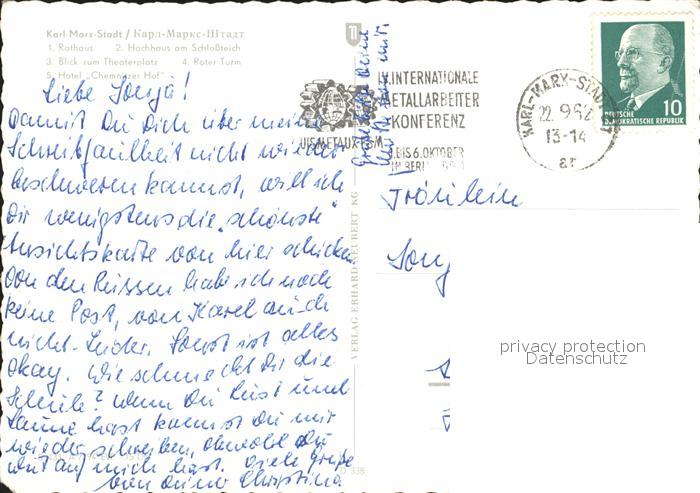 Karl-Marx-Stadt / Карл-Маркс-Штадт
1. Rathaus 2. Hochhaus am Schloßteich
3. Blick zum Theaterplatz 4. Roter Turm
5. Hotel „Chemnitzer Hof"
Liebe Sonja!
Damit Du Dich über meine
Schreibfaulheit nicht wieder
beschweren kannst, will ich
Dir wenigstens die „schönste"
Ansichtskarte von hier schicken.
Von den Russen habe ich noch
keine Post, von Karel auch
nicht. Leider. Sonst ist alles
okay. Wie schmeckt Dir die
Schule? Wenn Du Lust und
Laune hast kannst Du mir
wieder schreiben, obwohl Du
Wut auf mich hast. Viele Grüße
von Deiner Christina
VERLAG ERHARD NEUBERT KG
INTERNATIONALE
METALLARBEITER
KONFERENZ
BIS 6. OKTOBER
IN BERLIN
KARL-MARX-STADT
22.9.62
13-14
ar
10
DEUTSCHE
DEMOKRATISCHE REPUBLIK
Fräulein
Sony
privacy protection
Datenschutz
D 338